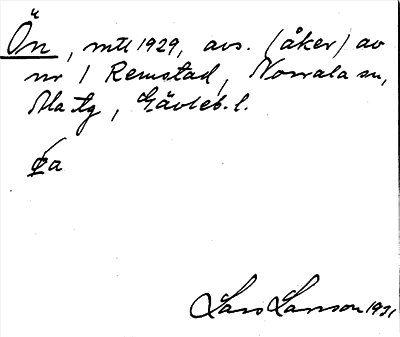 Ön, mtl 1929, avs. (åker) av
nr 1 Remstad, Norrala sn,
Ala tg, Gävleb. l.
Lars Larsson 1931